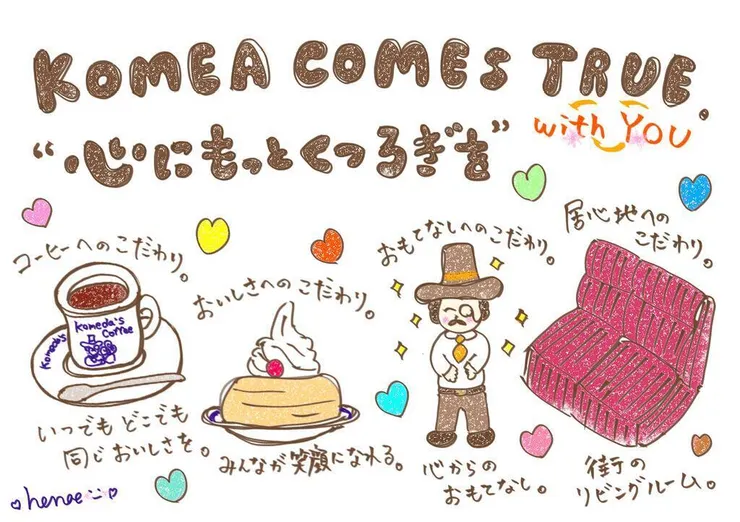 KOMEA COMES TRUE.
with YOU
“心にもっとくつろぎを”
コーヒーへのこだわり。
Komeda's
Coffee
Komeda's
いつでも どこでも
同じおいしさを。
おいしさへのこだわり。
みんなが笑顔になれる。
おもてなしへのこだわり。
心からの
おもてなし。
居心地への
こだわり。
街の
リビングルーム。
henae